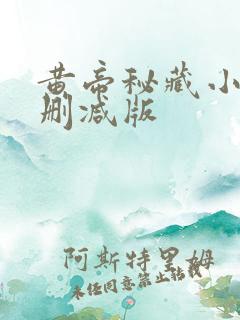 黄帝秘藏小
删减版
阿斯特里姆
未经同意禁止转载